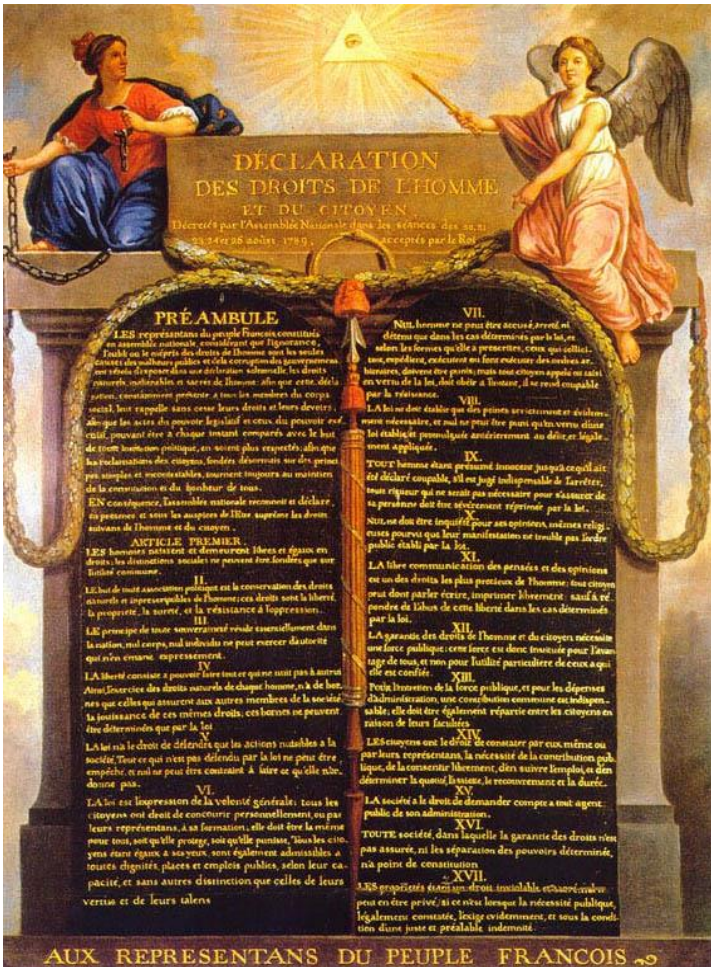 DÉCLARATION
DES DROITS DE L'HOMME
ET DU CITOYEN,
Décretés par l'Assemblée Nationale dans les séances des 20, 21
23, 24 et 26 août 1789, acceptés par le Roi
PRÉAMBULE
LES représentans du peuple François, constitués
en assemblée nationale, considérant que l'ignorance,
l'oubli ou le mépris des droits de l'homme sont les seules
causes des malheurs publics et de la corruption des gouvernemens
ont résolu d'exposer dans une déclaration solemnelle, les droits
naturels, inaliénables et sacrés de l'homme; afin que cette décla
ration, constamment présente a tous les membres du corps
social, leur rappelle sans cesse leurs droits et leurs devoirs,
afin que les actes du pouvoir legislatif et ceux du pouvoir exé
cutif, pouvant être a chaque instant comparés avec le but
de toute institution politique, en soient plus respectés; afin que
les reclamations des citoyens, fondées désormais sur des princi
pes simples et incontestables, tournent toujours au maintien
de la constitution et du bonheur de tous.
EN conséquence, l'assemblée nationale reconnoit et déclare
en presence et sous les auspices de l'Etre suprême les droits
suivans de l'homme et du citoyen.
ARTICLE PREMIER.
LES hommes naissent et demeurent libres et égaux en
droits; les distinctions sociales ne peuvent être fondées que sur
l'utilité commune.
II.
LE but de toute association politique est la conservation des droits
naturels et imprescriptibles de l'homme; ces droits sont la liberté,
la propriété, la sureté, et la résistance à l'oppression.
III.
LE principe de toute souveraineté réside essentiellement dans
la nation, nul corps, nul individu ne peut exercer d'autorité
qui n'en emane expressement.
IV.
LA liberté consiste a pouvoir faire tout ce qui ne nuit pas à autrui
Ainsi, l'exercice des droits naturels de chaque homme, n'a de bor-
nes que celles qui assurent aux autres membres de la société
la jouissance de ces mêmes droits; ces bornes ne peuvent
être déterminées que par la loi
V.
LA loi n'a le droit de défendre que les actions nuisibles à la
société. Tout ce qui n'est pas défendu par la loi ne peut être
empêché, et nul ne peut être contraint à faire ce qu'elle n'or-
donne pas.
VI.
LA loi est l'expression de la volonté générale; tous les
citoyens ont droit de concourir personnellement, ou par
leurs représentans, à sa formation; elle doit être la même
pour tous, soit qu'elle protege, soit qu'elle punisse, Tous les cito
yens étant égaux à ses yeux, sont également admissibles a
toutes dignités, places et emplois publics, selon leur ca-
pacité, et sans autres distinction que celles de leurs
vertus et de leurs talens
VII.
NUL homme ne peut être accusé, arreté, ni
détenu que dans les cas déterminés par la loi, et
selon les formes qu'elle a prescrites, ceux qui sollici-
tent, expédient, exécutent ou font exécuter des ordres ar-
bitraires, doivent être punis; mais tout citoyen appelé ou saisi
en vertu de la loi, doit obéir a l'instant, il se rend coupable
par la résistance.
VIII.
LA loi ne doit établir que des peines strictement et évidem-
ment nécessaire, et nul ne peut être puni qu'en vertu d'une
loi établie et promulguée antérierement au délit, et légale-
ment appliquée.
IX.
TOUT homme étant présumé innocent jusqu'a ce qu'il ait
été déclaré coupable, s'il est jugé indispensable de l'arrêter,
toute rigueur qui ne serait pas nécessaire pour s'assurer de
sa personne doit être sévèrement réprimée par la loi.
X.
NUL ne doit être inquiété pour ses opinions, mêmes religi-
euses pourvu que leur manifestation ne trouble pas l'ordre
public établi par la loi.
XI.
LA libre communication des pensées et des opinions
est un des droits les plus precieux de l'homme; tout citoyen
peut donc parler, écrire, imprimer librement: sauf à ré-
pondre de l'abus de cette liberté dans les cas déterminés
par la loi.
XII.
LA garantie des droits de l'homme et du citoyen nécessite
une force publique; cette force est donc instituée pour l'avan
tage de tous, et non pour l'utilité particuliere de ceux a qui
elle est confiée.
XIII.
POUR l'entretien de la force publique, et pour les dépenses
d'administration, une contribution commune est indispen-
sable; elle doit être également répartie entre les citoyens en
raison de leurs facultées
XIV.
LES citoyens ont le droit de constater par eux même ou
par leurs représentans, la nécessité de la contribution pub-
lique, de la consentir librement, d'en suivre l'emploi, et d'en
déterminer la quotité, l'assiette, le recouvrement et la durée.
XV.
LA société a le droit de demander compte a tout agent
public de son administration.
XVI.
TOUTE société, dans laquelle la garantie des droits n'est
pas assurée, ni les séparation des pouvoirs déterminée,
n'a point de constitution
XVII.
LES propriétés étant un droit inviolable et sacré, nul ne
peut en être privé, si ce n'est lorsque la nécessité publique,
légalement constatée, l'exige evidemment, et sous la condi-
tion d'une juste et préalable indemnité.
AUX REPRESENTANS DU PEUPLE FRANCOIS